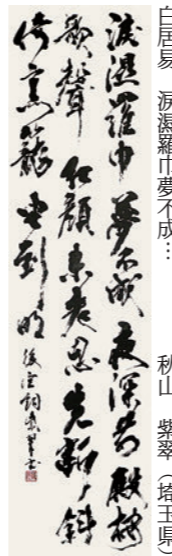 白居易　涙濕羅巾夢不成…　秋山　紫翠（埼玉県）
淚濕羅巾夢不成夜深前殿按
歌聲紅顔未老恩先斷斜
倚熏籠坐到明 後宮詞 紫翠書